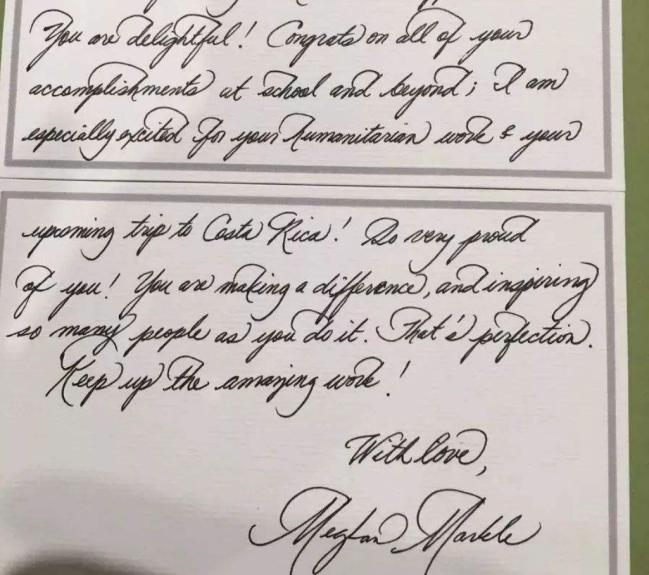 You are delightful! Congrats on all of your
accomplishments at school and beyond; I am
especially excited for your humanitarian work & your
upcoming trip to Costa Rica! So very proud
of you! You are making a difference, and inspiring
so many people as you do it. That's perfection.
Keep up the amazing work!
With love,
Meghan Markle